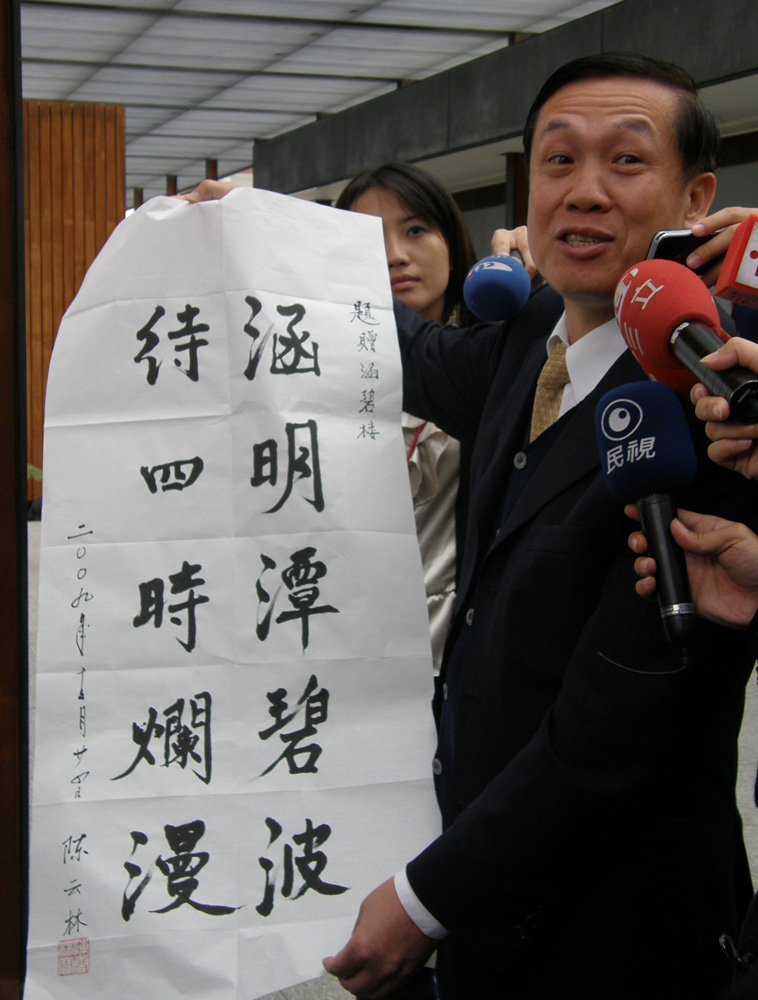 題贈涵碧楼
涵明潭碧波
待四時爛漫
二〇〇九年十二月廿四日 陈云林
三立
民視